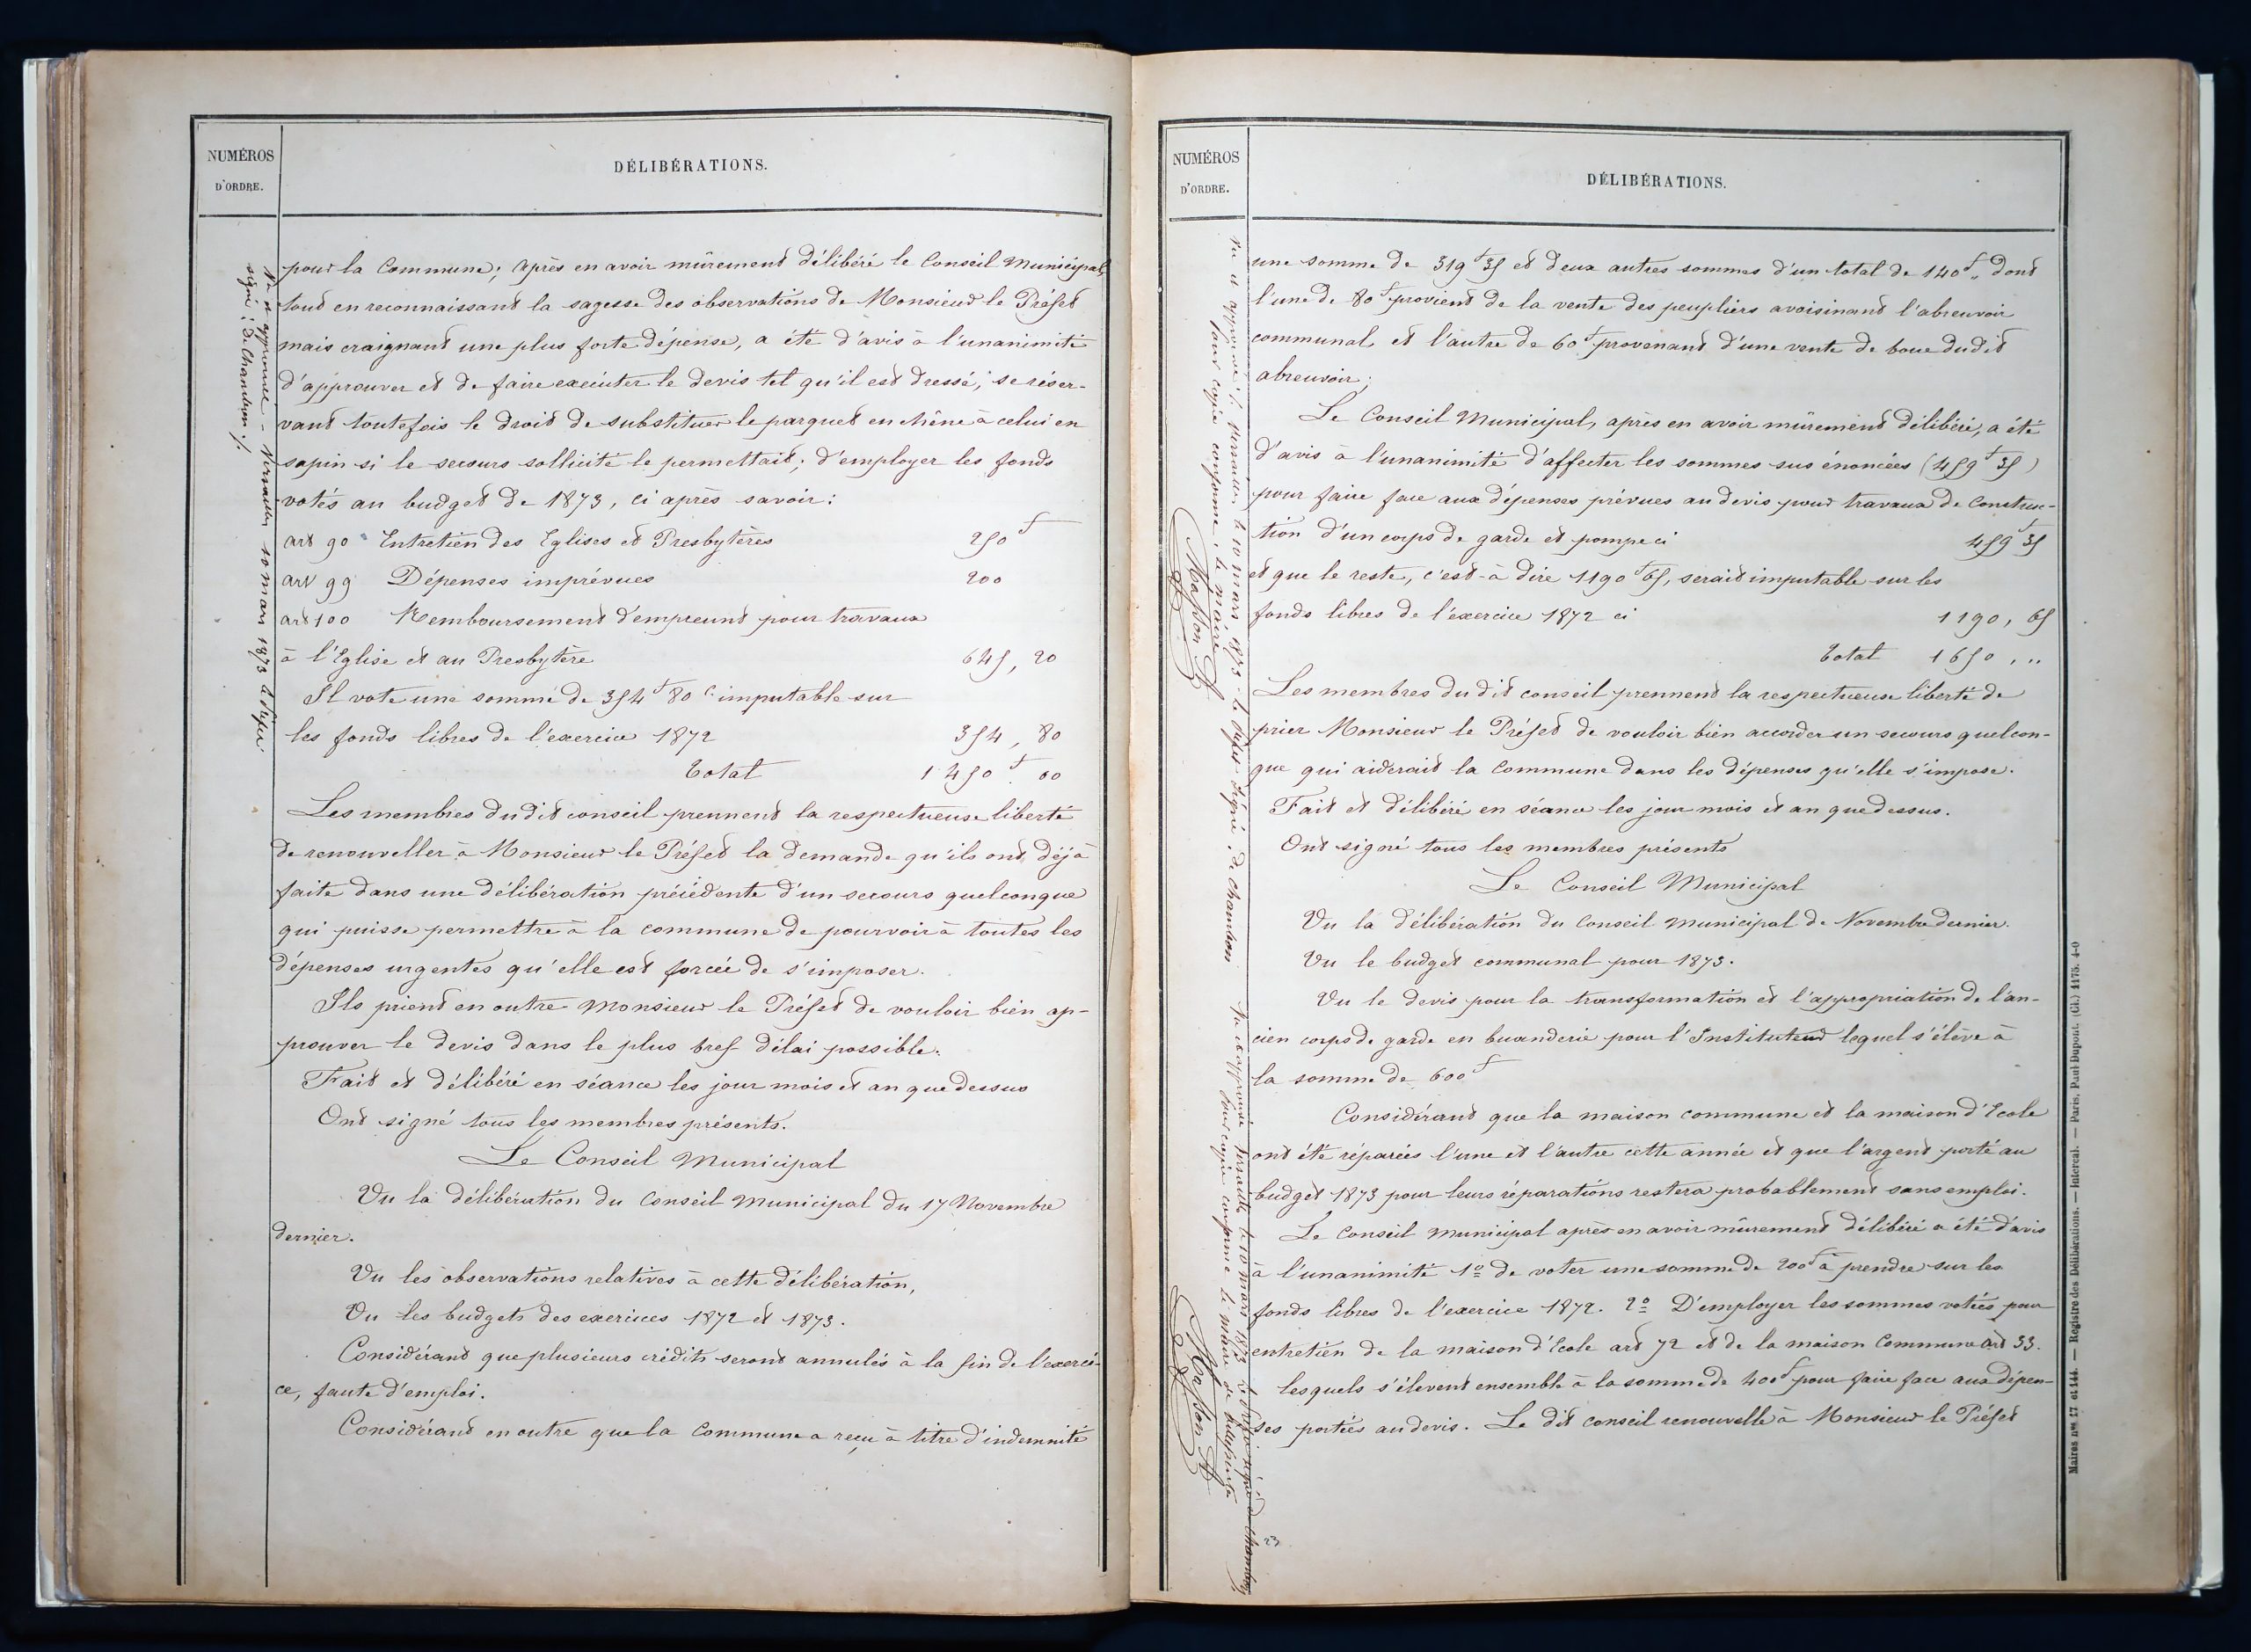 NUMÉROS
D'ORDRE.
DÉLIBÉRATIONS.
Vu et approuvé - Versailles 10 mars 1873 le Préfet
signé : De Chambon ./.
pour la Commune; après en avoir mûrement délibéré le Conseil Municipal,
tout en reconnaissant la sagesse des observations de Monsieur le Préfet
mais craignant une plus forte dépense, a été d'avis à l'unanimité
d'approuver et de faire exécuter le devis tel qu'il est dressé; se réser-
vant toutefois le droit de substituer le parquet en chêne à celui en
sapin si le secours sollicité le permettait; d'employer les fonds
votés au budget de 1873, ci après savoir:
art 90 Entretien des Eglises et Presbytères 250 f
art 99 Dépenses imprévues 200
art 100 Remboursement d'emprunt pour travaux
à l'Eglise et au Presbytère 645, 20
Il vote une somme de 354 f 80 c imputable sur
les fonds libres de l'exercice 1872 354, 80
Total 1450 f. 00
Les membres du dit conseil prennent la respectueuse liberté
de renouveller à Monsieur le Préfet la demande qu'ils ont déjà
faite dans une délibération précédente d'un secours quelconque
qui puisse permettre à la commune de pourvoir à toutes les
dépenses urgentes qu'elle est forcée de s'imposer.
Ils prient en outre Monsieur le Préfet de vouloir bien ap-
prouver le devis dans le plus bref délai possible.
Fait et délibéré en séance les jour mois et an que dessus
Ont signé tous les membres présents.
Le Conseil Municipal
Vu la délibération du Conseil Municipal du 17 Novembre
dernier.
Vu les observations relatives à cette délibération,
Vu les budgets des exercices 1872 et 1873.
Considérant que plusieurs crédits seront annulés à la fin de l'exerci-
ce, faute d'emploi.
Considérant en outre que la Commune a reçu à titre d'indemnité
NUMÉROS
D'ORDRE.
DÉLIBÉRATIONS.
Vu et approuvé : Versailles le 10 mars 1873 - le Préfet signé : de Chambon
Pour copie conforme, le maire
Masson
une somme de 319 f 35 et deux autres sommes d'un total de 140 f ,, dont
l'une de 80 f provient de la vente des peupliers avoisinant l'abreuvoir
communal et l'autre de 60 f provenant d'une vente de boue dudit
abreuvoir;
Le Conseil Municipal, après en avoir mûrement délibéré, a été
d'avis à l'unanimité d'affecter les sommes sus énoncées (459 f 35)
pour faire face aux dépenses prévues au devis pour travaux de Construc-
tion d'un corps de garde et pompe ci 459 f 35
et que le reste, c'est-à dire 1190 f 65, serait imputable sur les
fonds libres de l'exercice 1872 ci 1190, 65
Total 1650 , ,,
Les membres du dit conseil prennent la respectueuse liberté de
prier Monsieur le Préfet de vouloir bien accorder un secours quelcon-
que qui aiderait la Commune dans les dépenses qu'elle s'impose.
Fait et délibéré en séance les jour mois et an que dessus.
Ont signé tous les membres présents
Le Conseil Municipal
Vu la délibération du Conseil Municipal de Novembre dernier.
Vu le budget communal pour 1873.
Vu le devis pour la transformation et l'appropriation de l'an-
cien corps de garde en buanderie pour l'Instituteur lequel s'élève à
la somme de 600 f
Considérant que la maison commune et la maison d'Ecole
ont été réparées l'une et l'autre cette année et que l'argent porté au
budget 1873 pour leurs réparations restera probablement sans emploi.
Le Conseil Municipal après en avoir mûrement délibéré a été d'avis
à l'unanimité 1º de voter une somme de 200 f à prendre sur les
fonds libres de l'exercice 1872. 2º D'employer les sommes votées pour
entretien de la maison d'Ecole art 72 et de la maison Commune art 33.
lesquels s'élevent ensemble à la somme de 400 f pour faire face aux dépen-
ses portées au devis. Le dit conseil renouvelle à Monsieur le Préfet
Vu et approuvé Versailles le 10 mars 1873 le Préfet signé de Chambon
Pour copie conforme le maire de
Masson
23
Maires nos 17 et 144. — Registre des Délibérations. — Intercal. — Paris, Paul Dupont. (Cl.) 1175. 4-0